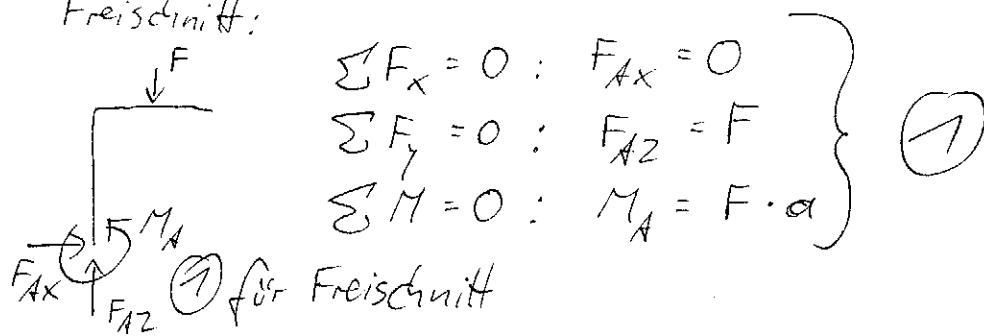 Freischnitt:
F
ΣF_x = 0 : F_Ax = 0
ΣF_y = 0 : F_AZ = F
ΣM = 0 : M_A = F · a
①
M_A
F_Ax
F_AZ
① für Freischnitt